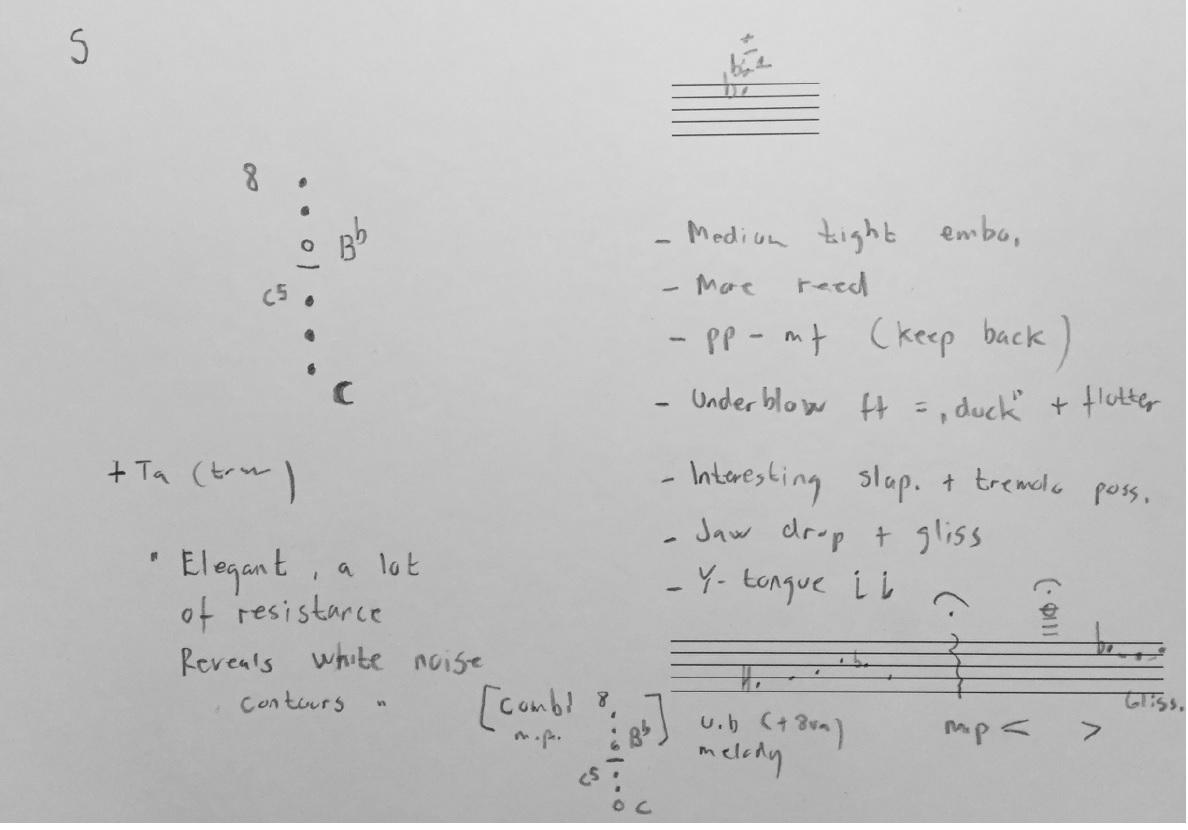 5
8
B♭
C5
C
- Medium tight embo.
- More reed
- pp - mf (keep back)
- Underblow ft = „duck" + flutter
+ Ta (
- Interesting slap. + tremolo poss.
- Jaw drop + gliss
- Y-tongue
" Elegant, a lot
of resistance
Reveals white noise
contours "
[Combi 8
m.p.
B♭]
C5
C
u.b (+8va)
melody
mp < >
Gliss.